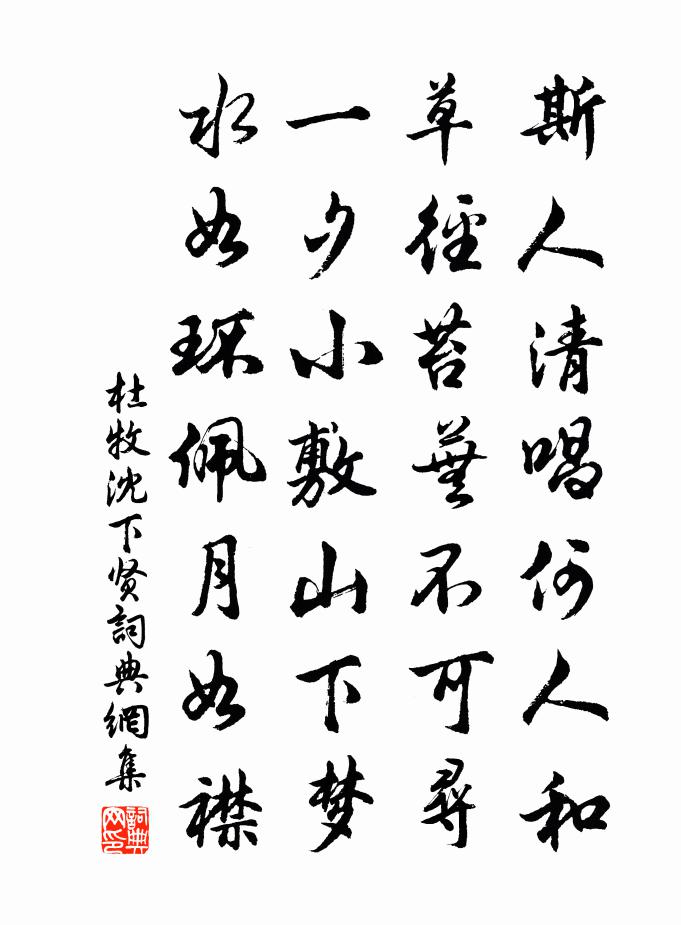 斯人清唱何人和
草徑苔蕪不可尋
一夕小敷山下梦
水如环佩月如襟
杜牧沈下贤詞典網集
詞典网印